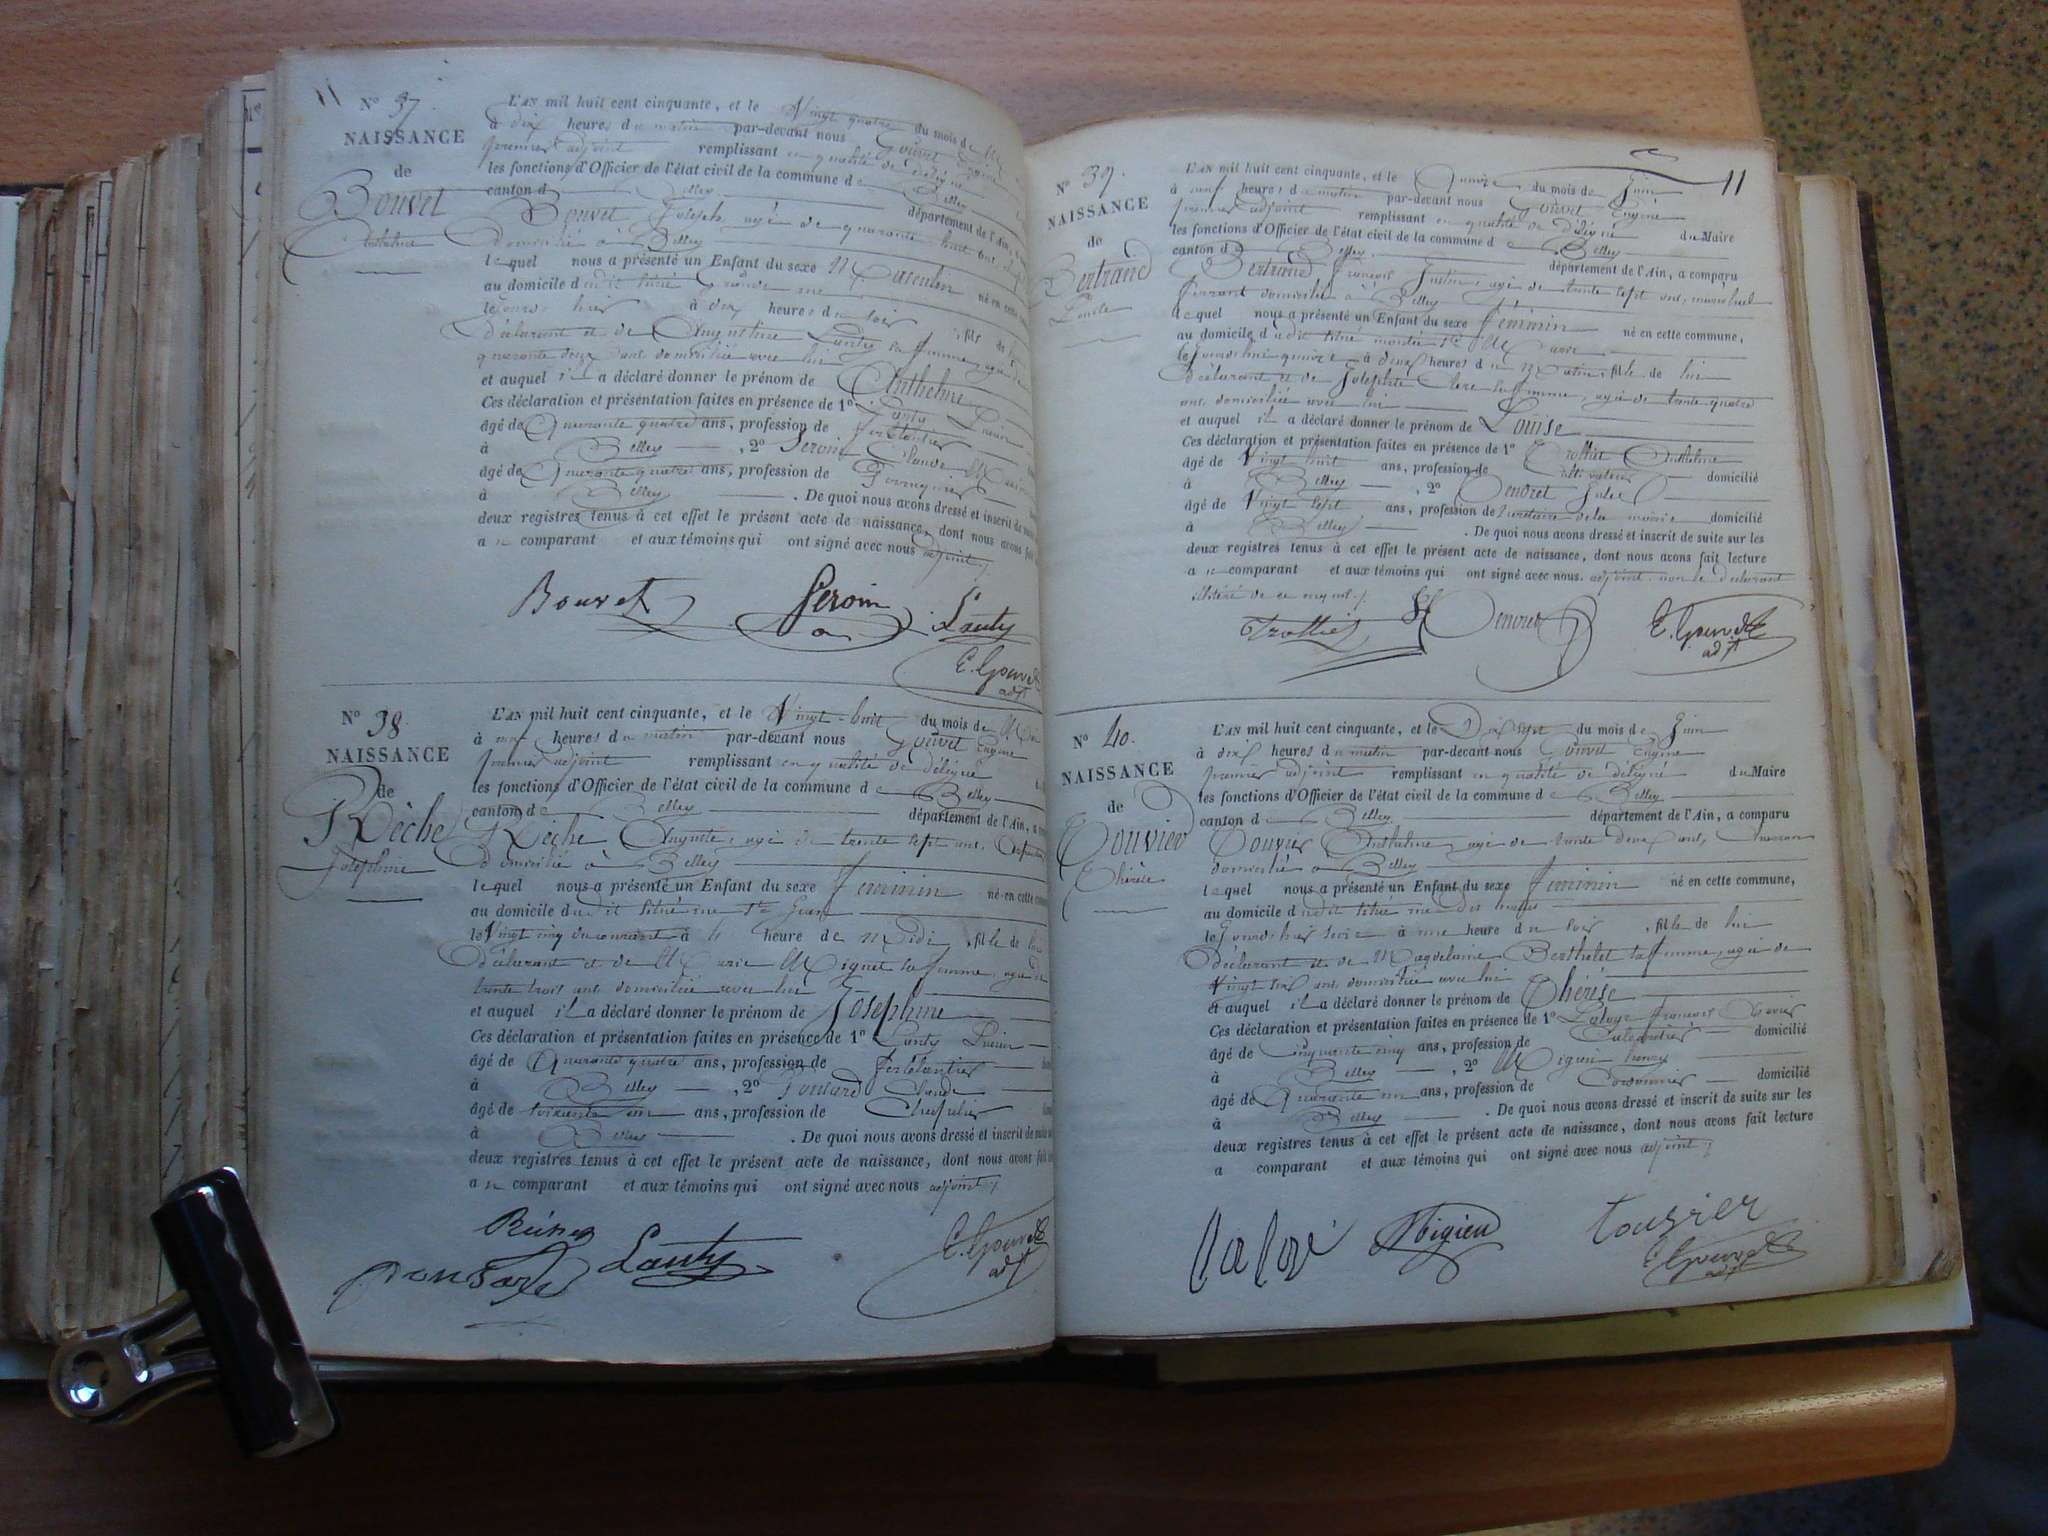 11
N° 37.
NAISSANCE
de
Bouvet
Anthelme
L'AN mil huit cent cinquante, et le Vingt quatre du mois de
à dix heures du matin par-devant nous Gouvet Eugène
premier adjoint remplissant en qualité de délégué
les fonctions d'Officier de l'état civil de la commune de Belley
canton de Belley département de l'Ain, a
Bouvet Joseph, agé de quarante huit ans,
domicilié à Belley
lequel nous a présenté un Enfant du sexe Masculin né en cette
au domicile dudit situé Grande rue
le jour d'hier à dix heures du soir, fils de
déclarant et de Augustine Lanty sa femme, agée de
quarante deux ans domiciliée avec lui
et auquel il a déclaré donner le prénom de Anthelme
Ces déclaration et présentation faites en présence de 1° Lanty
âgé de Quarante quatre ans, profession de ferblantier
à Belley, 2° Feroin Claude
âgé de Quarante quatre ans, profession de Perruquier
à Belley. De quoi nous avons dressé et inscrit de suite
deux registres tenus à cet effet le présent acte de naissance, dont nous avons fait
au comparant et aux témoins qui ont signé avec nous adjoint
Bouvet Feroin Lanty
E. Gouvet
adjt
N° 38.
NAISSANCE
de
Rèche
Joséphine
L'AN mil huit cent cinquante, et le Vingt-huit du mois de Mai
à neuf heures du matin par-devant nous Gouvet Eugène
premier adjoint remplissant en qualité de délégué
les fonctions d'Officier de l'état civil de la commune de Belley
canton de Belley département de l'Ain, a
Rèche Auguste, agé de trente sept ans,
domicilié à Belley
lequel nous a présenté un Enfant du sexe féminin né en cette commune
au domicile dudit situé rue St Jean
le Vingt cinq du courant à heure de Midi, fille de lui
déclarant et de Marie Miguet sa femme, agée de
trente trois ans domiciliée avec lui
et auquel il a déclaré donner le prénom de Joséphine
Ces déclaration et présentation faites en présence de 1° Lanty
âgé de Quarante quatre ans, profession de ferblantier
à Belley, 2° Ponsard Claude
âgé de soixante un ans, profession de Chapelier
à Belley. De quoi nous avons dressé et inscrit de suite
deux registres tenus à cet effet le présent acte de naissance, dont nous avons fait
au comparant et aux témoins qui ont signé avec nous adjoint
Ponsard Lanty E. Gouvet
adjt
11
N° 39.
NAISSANCE
de
Bertrand
Louise
L'AN mil huit cent cinquante, et le Quinze du mois de Juin
à neuf heures du matin par-devant nous Gouvet Eugène
premier adjoint remplissant en qualité de délégué du Maire
les fonctions d'Officier de l'état civil de la commune de Belley
canton de Belley département de l'Ain, a comparu
Bertrand François Justin, agé de trente sept ans, maréchal
ferrant domicilié à Belley
lequel nous a présenté un Enfant du sexe féminin né en cette commune,
au domicile dudit situé montée
le Jourd'hui quinze à deux heures du Matin, fille de lui
déclarant et de Josephte Clerc sa femme, agée de trente quatre
ans, domiciliée avec lui
et auquel il a déclaré donner le prénom de Louise
Ces déclaration et présentation faites en présence de 1° Trolliet Anthelme
âgé de Vingt huit ans, profession de cultivateur domicilié
à Belley, 2° Gendret Jules
âgé de Vingt sept ans, profession de Secrétaire de la mairie domicilié
à Belley. De quoi nous avons dressé et inscrit de suite sur les
deux registres tenus à cet effet le présent acte de naissance, dont nous avons fait lecture
au comparant et aux témoins qui ont signé avec nous adjoint. non le déclarant
illitéré de ce enquis
Trolliet Gendret E. Gouvet
adjt
N° 40.
NAISSANCE
de
Touvier
Thérèse
L'AN mil huit cent cinquante, et le Dix sept du mois de Juin
à dix heures du matin par-devant nous Gouvet Eugène
premier adjoint remplissant en qualité de délégué du Maire
les fonctions d'Officier de l'état civil de la commune de Belley
canton de Belley département de l'Ain, a comparu
Touvier Anthelme, agé de trente deux ans,
domicilié à Belley
lequel nous a présenté un Enfant du sexe féminin né en cette commune,
au domicile dudit situé rue des
le Jourd'hier seize à une heure du soir, fille de lui
déclarant et de Magdelaine Berthelet sa femme, agée de
Vingt six ans, domiciliée avec lui
et auquel il a déclaré donner le prénom de Thérèse
Ces déclaration et présentation faites en présence de 1° François
âgé de cinquante cinq ans, profession de domicilié
à Belley, 2° Henry
âgé de Quarante un ans, profession de Cordonnier domicilié
à Belley. De quoi nous avons dressé et inscrit de suite sur les
deux registres tenus à cet effet le présent acte de naissance, dont nous avons fait lecture
a comparant et aux témoins qui ont signé avec nous adjoint
touvier
E. Gouvet
adjt